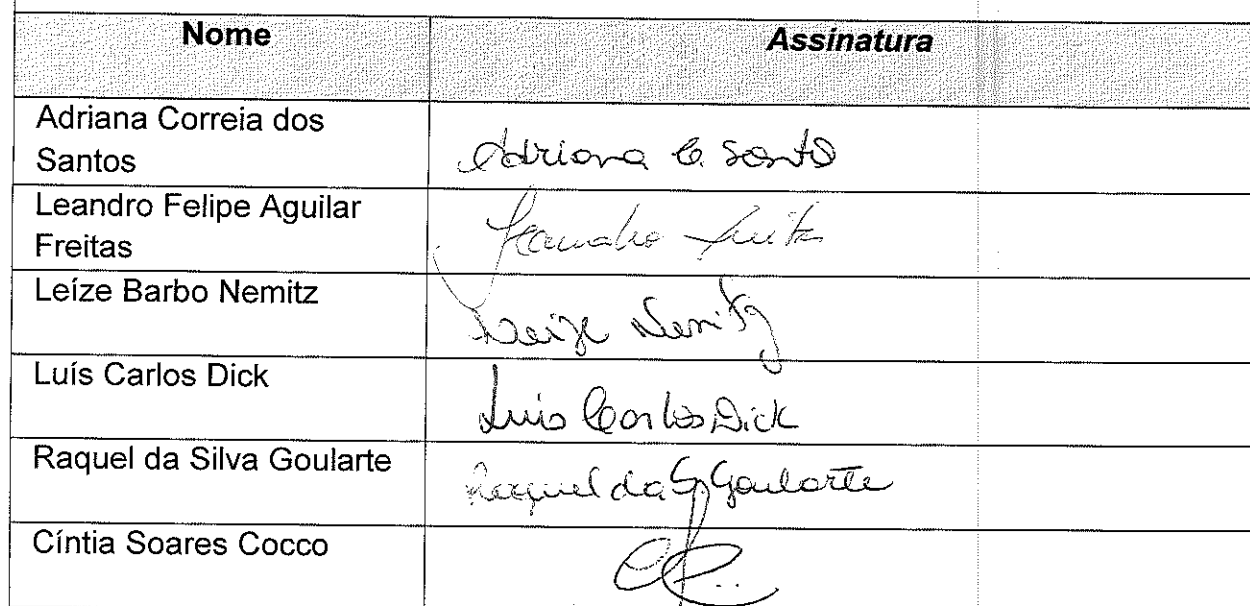 Nome Assinatura
Adriana Correia dos
Santos
Adriana C. Santos
Leandro Felipe Aguilar
Freitas
Leandro Freitas
Leíze Barbo Nemitz
Leize Nemitz
Luís Carlos Dick
Luis Carlos Dick
Raquel da Silva Goularte
Raquel da S Goularte
Cíntia Soares Cocco